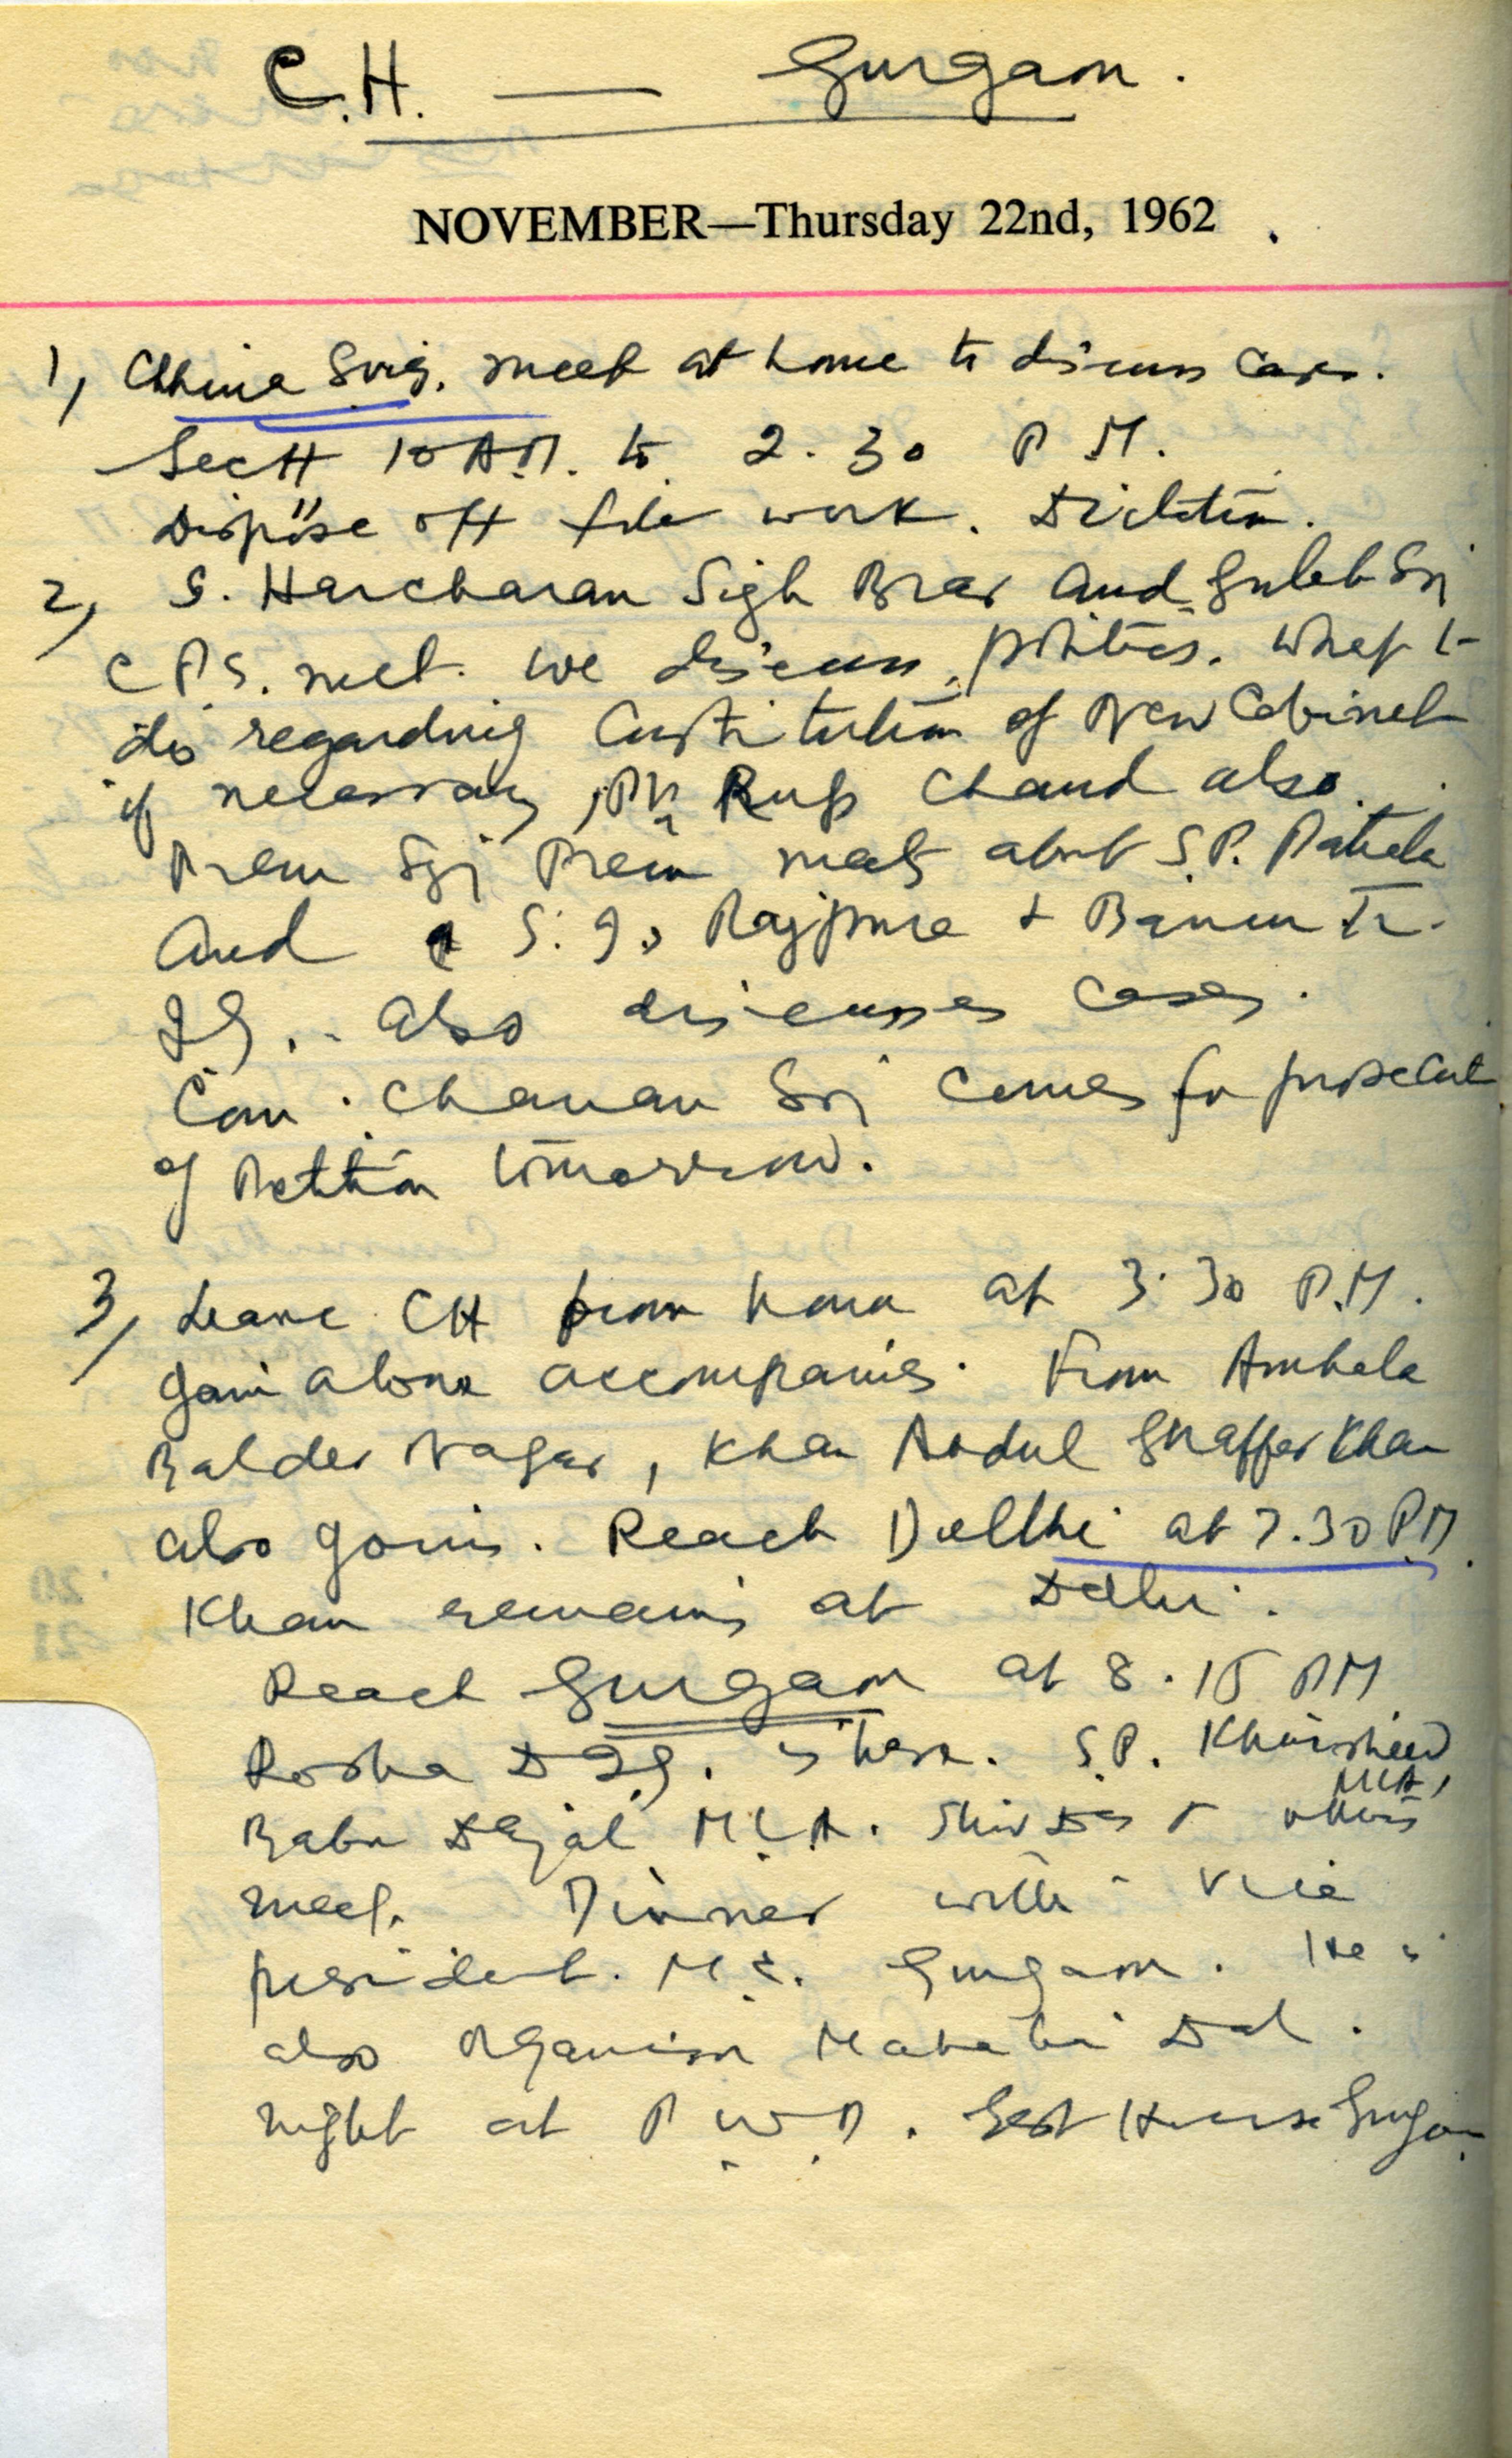 C.H. — Gurgaon.
NOVEMBER—Thursday 22nd, 1962
1, Chhina Sing. meet at home to discuss cases.
Sectt 10 AM. to 2.30 P.M.
Dispose off file work. Dictation.
2, S. Harcharan Sigh Brar and Gulab Sij
C P S. meet. We discuss politics. What to
do regarding Constitution of New Cabinet
if necessary, Rup Chand also.
Prem Sij Prem meets about S.P. Patiala
and S.I., Rajpura + Banur Tr.
IG.. also discusses cases.
Com. Chanan Sij comes for
of Petition tomorrow.
3, Leave CH from home at 3.30 P.M.
alone accompanies. From Ambala
Baldev Nagar, Khan Abdul Ghaffar Khan
also joins. Reach Delhi at 7.30 PM.
Khan remains at Delhi.
Reach Gurgaon at 8.15 PM
Rosha DIG. is there. S.P. Khursheed
MLA,
Babu Dayal M.L.A. Shiv Das & others
meet. Dinner with Vice
president. M.C. Gurgaon. He is
also Mahabir Dal.
Night at P.W.D. Gest House Gurgaon